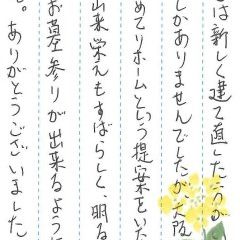 は新しく建て直したほうが
しかありませんでしたが、大阪
めてリホームという提案をいた
出来栄えもすばらしく、明る
お墓参りが出来るように
。ありがとうございました。